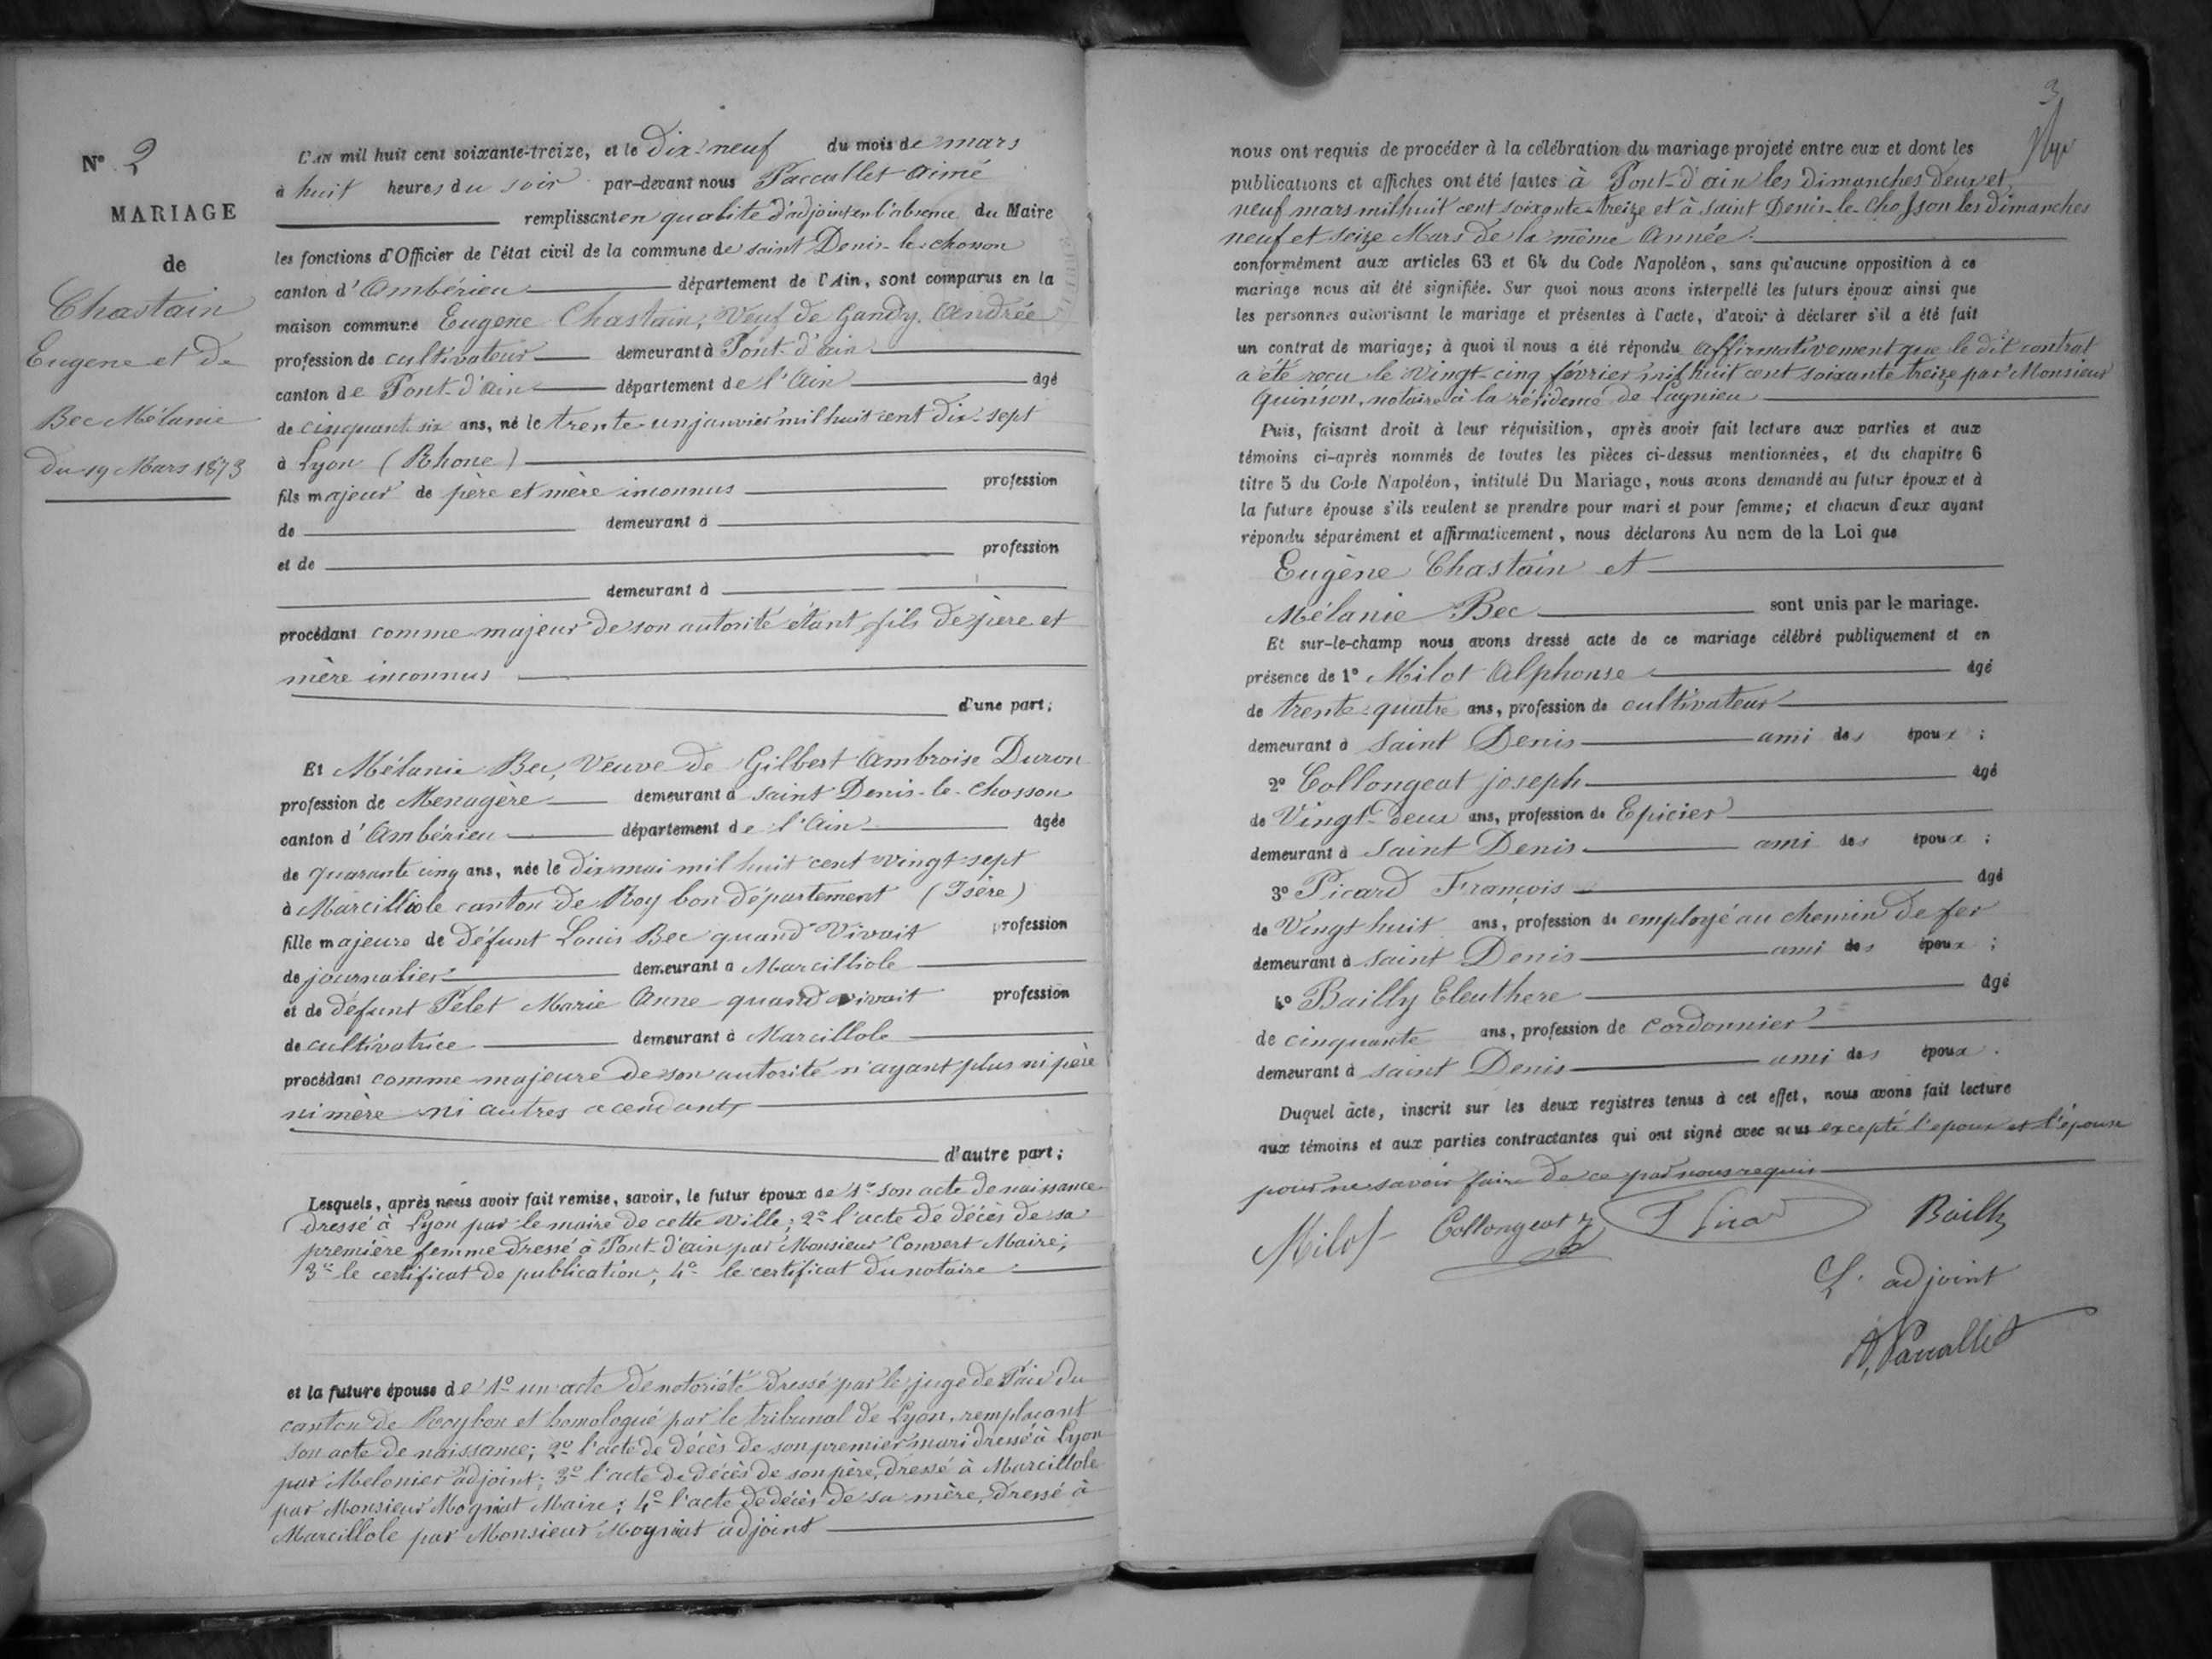 N° 2
MARIAGE
de
Chastain
Eugene et de
Bec Mélanie
du 19 Mars 1873
L'an mil huit cent soixante-treize, et le Dix-neuf du mois de mars
à huit heures du soir par-devant nous Paccallet Aimé
remplissant en qualité d'adjoint en l'absence du Maire
les fonctions d'Officier de l'état civil de la commune de saint Denis-le-chosson
canton d'Ambérieu département de l'Ain, sont comparus en la
maison commune Eugene Chastain, Veuf de Gandy Andrée
profession de cultivateur demeurant à Pont-d'ain
canton de Pont-d'ain département de l'Ain âgé
de cinquant six ans, né le trente-un janvier mil huit cent dix-sept
à Lyon (Rhone)
fils majeur de père et mère inconnus profession
de demeurant à
et de profession
demeurant à
procédant comme majeur de son autorité étant fils de père et
mère inconnus
d'une part;
Et Mélanie Bec, Veuve de Gilbert Ambroise Duron
profession de Menagère demeurant à saint Denis-le-Chosson
canton d'Ambérieu département de l'Ain âgée
de quarante cinq ans, née le dix mai mil huit cent vingt-sept
à Marcilliole canton de Roy bon département (Isère)
fille majeure de défunt Louis Bec quand Vivait profession
de journalier demeurant à Marcilliole
et de défunt Pelet Marie Anne quand vivait profession
de cultivatrice demeurant à Marcillole
procédant comme majeure de son autorité n'ayant plus ni père
ni mère ni autres acendants
d'autre part;
Lesquels, après nous avoir fait remise, savoir, le futur époux de 1° son acte de naissance
dressé à Lyon par le maire de cette ville; 2° l'acte de décès de sa
première femme dressé à Pont-d'ain par Monsieur Convert Maire;
3° le certificat de publication; 4° le certificat du notaire
et la future épouse de 1° un acte de notoriété dressé par le juge de Paix du
canton de Roybon et homologué par le tribunal de Lyon, remplaçant
son acte de naissance; 2° l'acte de décès de son premier mari dressé à Lyon
par Melonier adjoint; 3° l'acte de décès de son père, dressé à Marcillole
par Monsieur Mogniat Maire; 4° l'acte de décès de sa mère, dressé à
Marcillole par Monsieur Mogniat adjoint
3
nous ont requis de procéder à la célébration du mariage projeté entre eux et dont les
publications et affiches ont été faites à Pont-d'ain les dimanches deux et
neuf mars mil huit cent soixante-treize et à saint Denis-le-Chosson les dimanches
neuf et seize Mars de la même Année
conformément aux articles 63 et 64 du Code Napoléon, sans qu'aucune opposition à ce
mariage nous ait été signifiée. Sur quoi nous avons interpellé les futurs époux ainsi que
les personnes autorisant le mariage et présentes à l'acte, d'avoir à déclarer s'il a été fait
un contrat de mariage; à quoi il nous a été répondu affirmativement que le dit contrat
a été reçu le vingt-cinq février mil huit cent soixante treize par Monsieur
Quinson, notaire à la résidence de Lagnieu
Puis, faisant droit à leur réquisition, après avoir fait lecture aux parties et aux
témoins ci-après nommés de toutes les pièces ci-dessus mentionnées, et du chapitre 6
titre 5 du Code Napoléon, intitulé Du Mariage, nous avons demandé au futur époux et à
la future épouse s'ils veulent se prendre pour mari et pour femme; et chacun d'eux ayant
répondu séparément et affirmativement, nous déclarons Au nom de la Loi que
Eugène Chastain et
Mélanie Bec sont unis par le mariage.
Et sur-le-champ nous avons dressé acte de ce mariage célébré publiquement et en
présence de 1° Milot Alphonse âgé
de trente-quatre ans, profession de cultivateur
demeurant à Saint Denis ami des époux;
2° Collongeat joseph âgé
de Vingt-deux ans, profession de Epicier
demeurant à Saint Denis ami des époux;
3° Picard François âgé
de Vingt huit ans, profession de employé au chemin de fer
demeurant à Saint Denis ami des époux;
4° Bailly Eleuthere âgé
de cinquante ans, profession de cordonnier
demeurant à saint Denis ami des époux.
Duquel acte, inscrit sur les deux registres tenus à cet effet, nous avons fait lecture
aux témoins et aux parties contractantes qui ont signé avec nous excepté l'epoux et l'épouse
pour ne savoir faire de ce par nous requis
Milot Collongeat j Bailly
L'adjoint
A. Paccallet